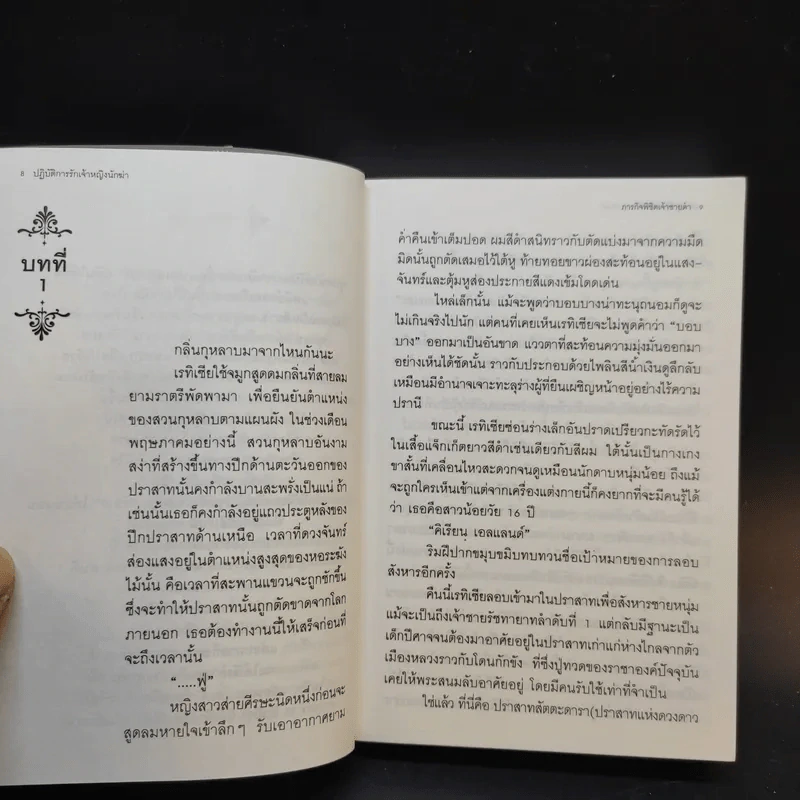 8 ปฏิบัติการรักเจ้าหญิงนักฆ่า
บทที่
1
กลิ่นกุหลาบมาจากไหนกันนะ
เรทิเซียใช้จมูกสูดดมกลิ่นที่สายลม
ยามราตรีพัดพามา เพื่อยืนยันตำแหน่ง
ของสวนกุหลาบตามแผนผัง ในช่วงเดือน
พฤษภาคมอย่างนี้ สวนกุหลาบอันงาม
สง่าที่สร้างขึ้นทางปีกด้านตะวันออกของ
ปราสาทนั้นคงกำลังบานสะพรั่งเป็นแน่ ถ้า
เช่นนั้นเธอก็คงกำลังอยู่แถวประตูหลังของ
ปีกปราสาทด้านเหนือ เวลาที่ดวงจันทร์
ส่องแสงอยู่ในตำแหน่งสูงสุดของหอระฆัง
ไม้นั้น คือเวลาที่สะพานแขวนจะถูกชักขึ้น
ซึ่งจะทำให้ปราสาทนั้นถูกตัดขาดจากโลก
ภายนอก เธอต้องทำงานนี้ให้เสร็จก่อนที่
จะถึงเวลานั้น
“.....ฟู่”
หญิงสาวส่ายศีรษะนิดหนึ่งก่อนจะ
สูดลมหายใจเข้าลึกๆ รับเอาอากาศยาม
ภารกิจพิชิตเจ้าชายดำ 9
ค่ำคืนเข้าเต็มปอด ผมสีดำสนิทราวกับตัดแบ่งมาจากความมืด
มิดนั้นถูกตัดเสมอไว้ใต้หู ท้ายทอยขาวผ่องสะท้อนอยู่ในแสง-
จันทร์และตุ้มหูส่องประกายสีแดงเข้มโดดเด่น
ไหล่เล็กนั้น แม้จะพูดว่าบอบบางน่าทะนุถนอมก็ดูจะ
ไม่เกินจริงไปนัก แต่คนที่เคยเห็นเรทิเซียจะไม่พูดคำว่า “บอบ
บาง” ออกมาเป็นอันขาด แววตาที่สะท้อนความมุ่งมั่นออกมา
อย่างเห็นได้ชัดนั้น ราวกับประกอบด้วยไพลินสีน้ำเงินดูลึกลับ
เหมือนมีอำนาจเจาะทะลุร่างผู้ที่ยืนเผชิญหน้าอยู่อย่างไร้ความ
ปรานี
ขณะนี้ เรทิเซียซ่อนร่างเล็กอันปราดเปรียวกะทัดรัดไว้
ในเสื้อแจ็กเก็ตยาวสีดำเช่นเดียวกับสีผม ใต้นั้นเป็นกางเกง
ขาสั้นที่เคลื่อนไหวสะดวกจนดูเหมือนนักดาบหนุ่มน้อย ถึงแม้
จะถูกใครเห็นเข้าแต่จากเครื่องแต่งกายนี้ก็คงยากที่จะมีคนรู้ได้
ว่า เธอคือสาวน้อยวัย 16 ปี
“คิเรียน เอลแลนด์”
ริมฝีปากขมุบขมิบทบทวนชื่อเป้าหมายของการลอบ
สังหารอีกครั้ง
คืนนี้เรทิเซียลอบเข้ามาในปราสาทเพื่อสังหารชายหนุ่ม
แม้จะเป็นถึงเจ้าชายรัชทายาทลำดับที่ 1 แต่กลับมีฐานะเป็น
เด็กปีศาจจนต้องมาอาศัยอยู่ในปราสาทเก่าแก่ห่างไกลจากตัว
เมืองหลวงราวกับโดนกักขัง ที่ซึ่งปู่ทวดของราชาองค์ปัจจุบัน
เคยให้พระสนมลับอาศัยอยู่ โดยมีคนรับใช้เท่าที่จำเป็น
ใช่แล้ว ที่นี่คือ ปราสาทสัตตะดารา(ปราสาทแห่งดวงดาว